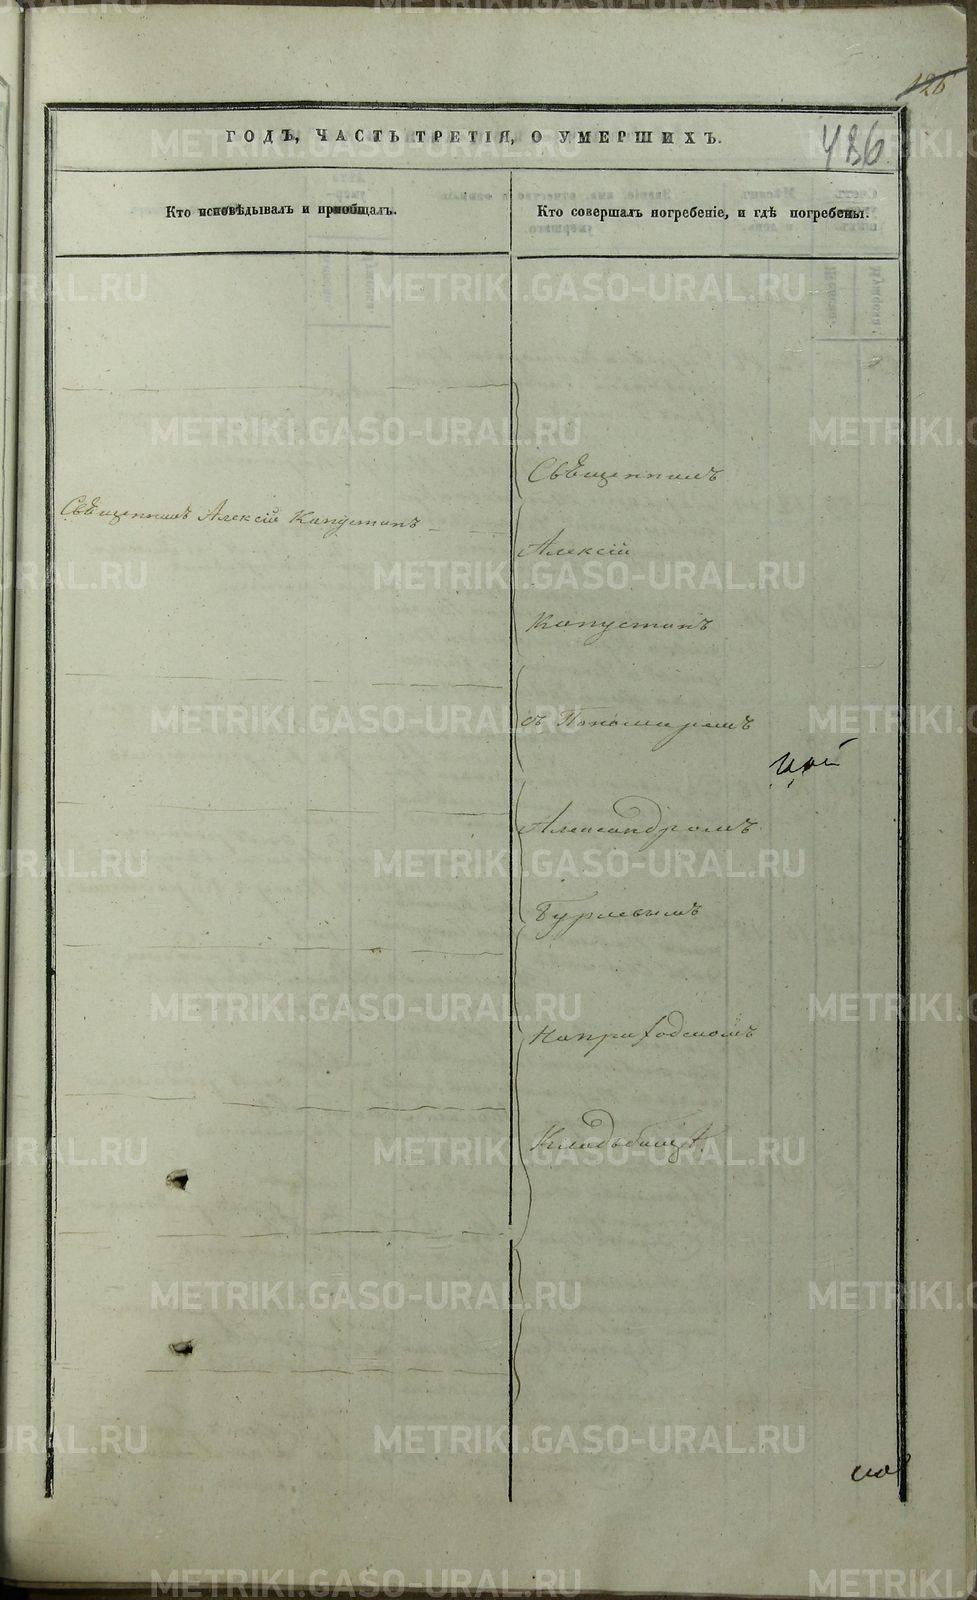 126
436
ГОДЪ, ЧАСТЬ ТРЕТІЯ, О УМЕРШИХЪ.
Кто исповѣдывалъ и пріобщалъ.
Кто совершалъ погребеніе, и гдѣ погребены.
Свѣщенникъ
Свѣщенникъ Алексій Капустинъ
Алексій
Капустинъ
съ Пономаремъ
Александромъ
Бурлевымъ
На приходскомъ
Кладъбищѣ
METRIKI.GASO-URAL.RU